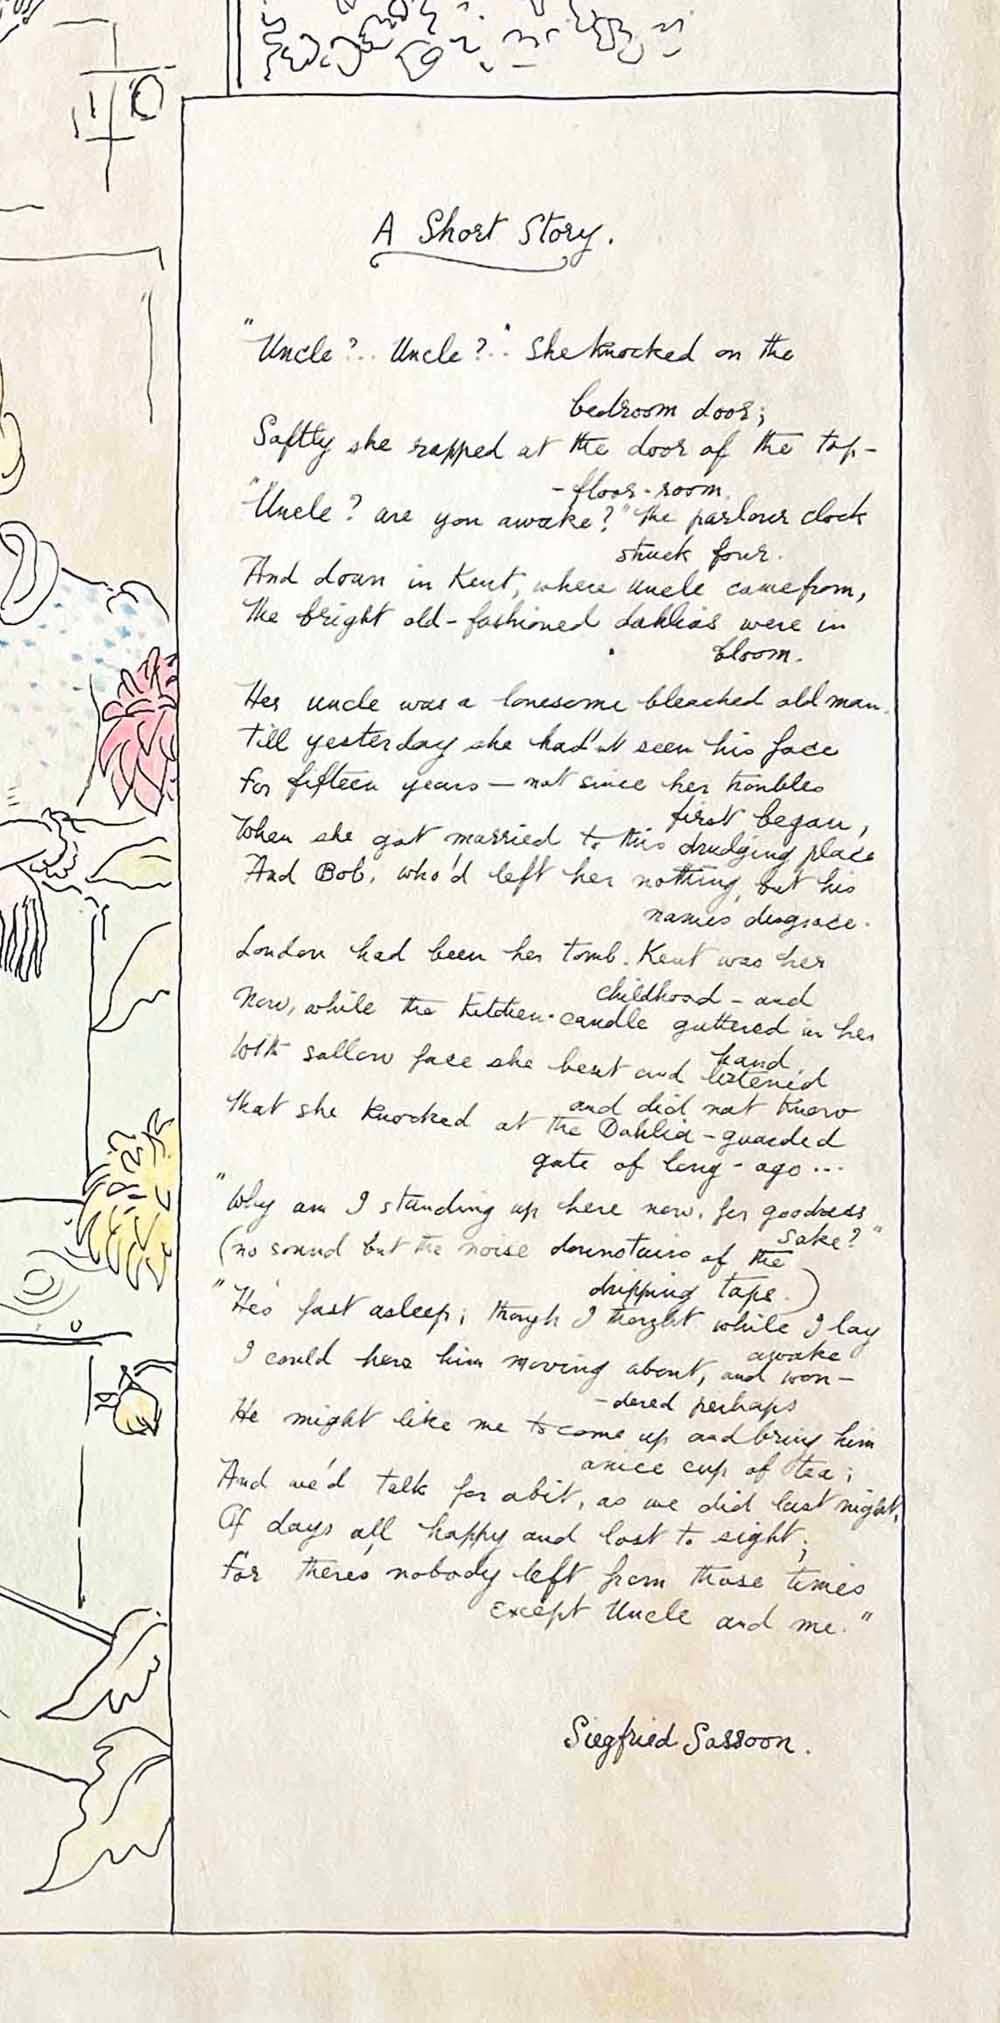 A Short Story.
"Uncle?.. Uncle?.." She knocked on the
bedroom door;
Softly she rapped at the door of the top-
-floor-room.
"Uncle? are you awake?" The parlour clock
struck four.
And down in Kent, where Uncle came from,
The bright old-fashioned dahlias were in
bloom.
Her uncle was a lonesome bleached old man.
Till yesterday she had'nt seen his face
For fifteen years — not since her troubles
first began,
When she got married to this drudging place
And Bob, who'd left her nothing but his
names disgrace.
London had been her tomb. Kent was her
childhood - and
Now, while the kitchen-candle guttered in her
hand,
With sallow face she bent and listened
and did not know
That she knocked at the Dahlia-guarded
gate of long-ago...
"Why am I standing up here now, for goodness
sake?"
(no sound but the noise downstairs of the
dripping taps.)
"He's fast asleep; though I thought while I lay
awake
I could hear him moving about, and won-
-dered perhaps
He might like me to come up and bring him
a nice cup of tea;
And we'd talk for a bit, as we did last night,
Of days all happy and lost to sight;
For there's nobody left from those times
except Uncle and me."
Siegfried Sassoon.